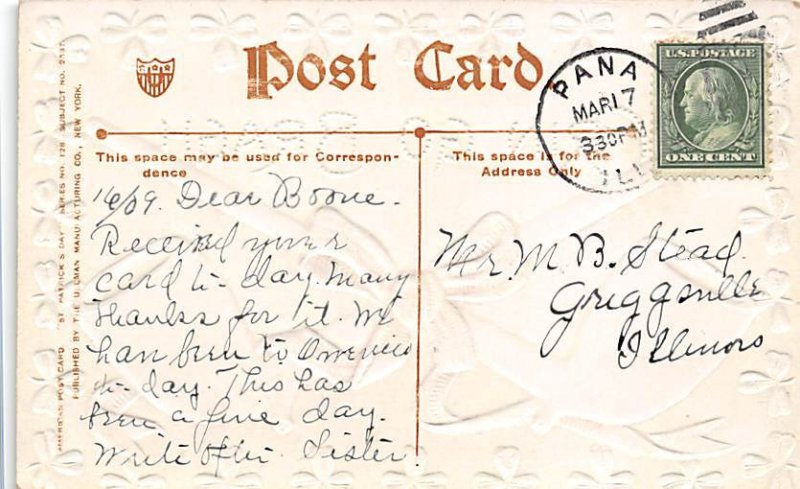 Post Card.
PANA
MAR 17
330PM
ILL
U.S. POSTAGE
ONE CENT
This space may be used for Correspon-
dence
This space is for the
Address Only
AMERICAN POST CARD "ST PATRICK'S DAY" SERIES NO. 128 SUBJECT NO.
PUBLISHED BY THE ULLMAN MANUFACTURING CO., NEW YORK.
Dear Boone.
Received your
card to-day. Many
thanks for it. We
have been to Oweneco
to-day. This has
been a fine day.
Write often Sister
Mr. M. B. Stead
Griggsville
Illinois